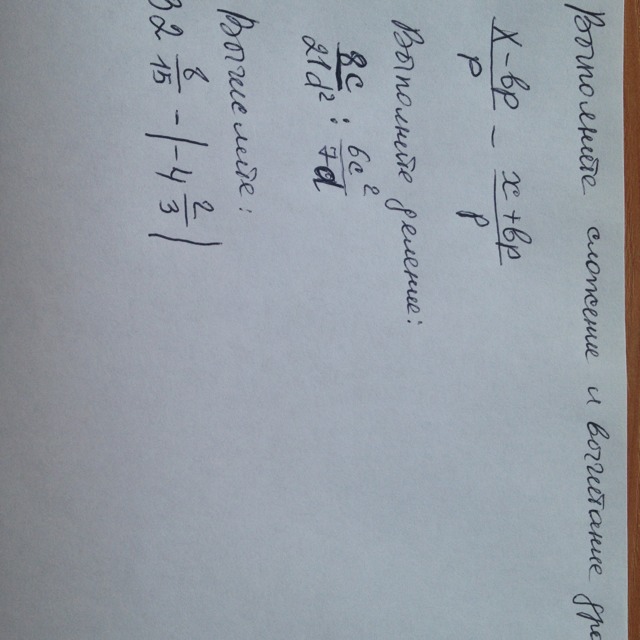 Выполните сложение и вычитание
x - bp / p - x + bp / p
Выполните деление:
8c / 21d² : 6c² / 7d
Вычислите:
32 8/15 - |-4 2/3|